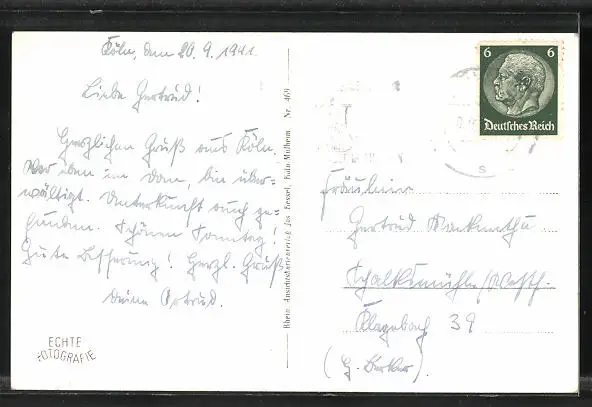 Köln, den 20.9.1941
Liebe Gertrud!
Herzlichen Gruß aus Köln.
War eben im Dom, bin über-
wältigt. Unterkunft auch ge-
funden. Schönen Sonntag!
Gute Besserung! Herzl. Gruß
Deine Ortrud.
ECHTE
FOTOGRAFIE
Rhein. Ansichtskartenverlag Jos. Kessel, Köln-Mülheim Nr. 469
6 6
Deutsches Reich
Fräulein
Gertrud
Schalksmühle/Westf.
Klagebach 39